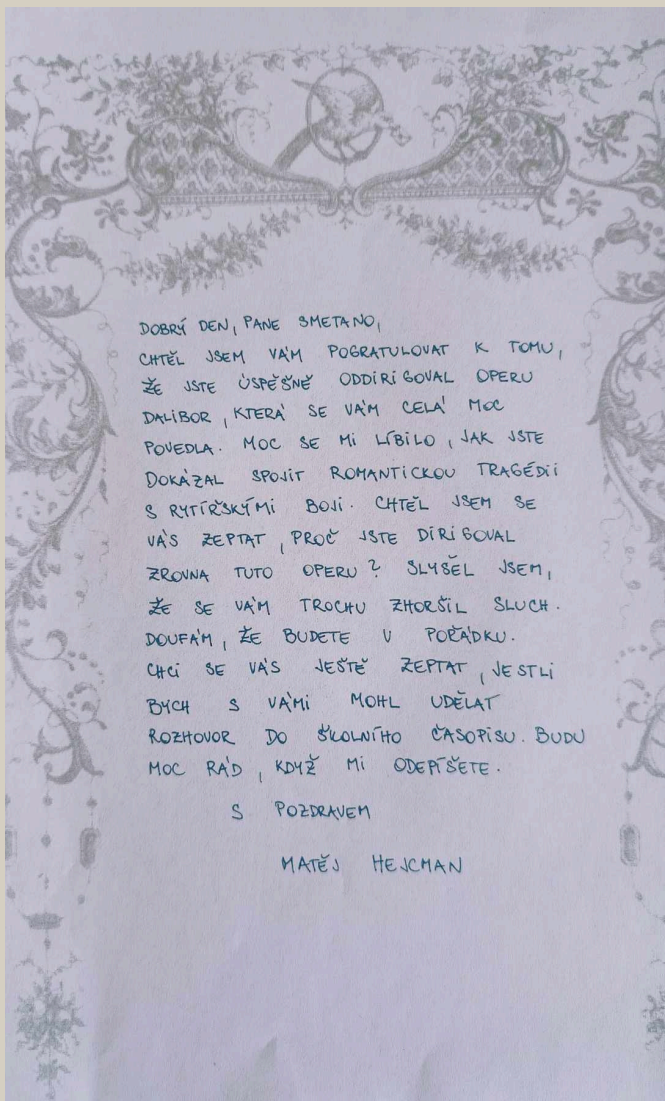 DOBRÝ DEN, PANE SMETANO,
CHTĚL JSEM VÁM POGRATULOVAT K TOMU,
ŽE JSTE ÚSPĚŠNĚ ODDIRIGOVAL OPERU
DALIBOR, KTERÁ SE VÁM CELÁ MOC
POVEDLA. MOC SE MI LÍBILO, JAK JSTE
DOKÁZAL SPOJIT ROMANTICKOU TRAGÉDII
S RYTÍŘSKÝMI BOJI. CHTĚL JSEM SE
VÁS ZEPTAT, PROČ JSTE DIRIGOVAL
ZROVNA TUTO OPERU? SLYŠEL JSEM,
ŽE SE VÁM TROCHU ZHORŠIL SLUCH.
DOUFÁM, ŽE BUDETE V POŘÁDKU.
CHCI SE VÁS JEŠTĚ ZEPTAT, JESTLI
BYCH S VÁMI MOHL UDĚLAT
ROZHOVOR DO ŠKOLNÍHO ČASOPISU. BUDU
MOC RÁD, KDYŽ MI ODEPÍŠETE.
S POZDRAVEM
MATĚJ HEJCMAN